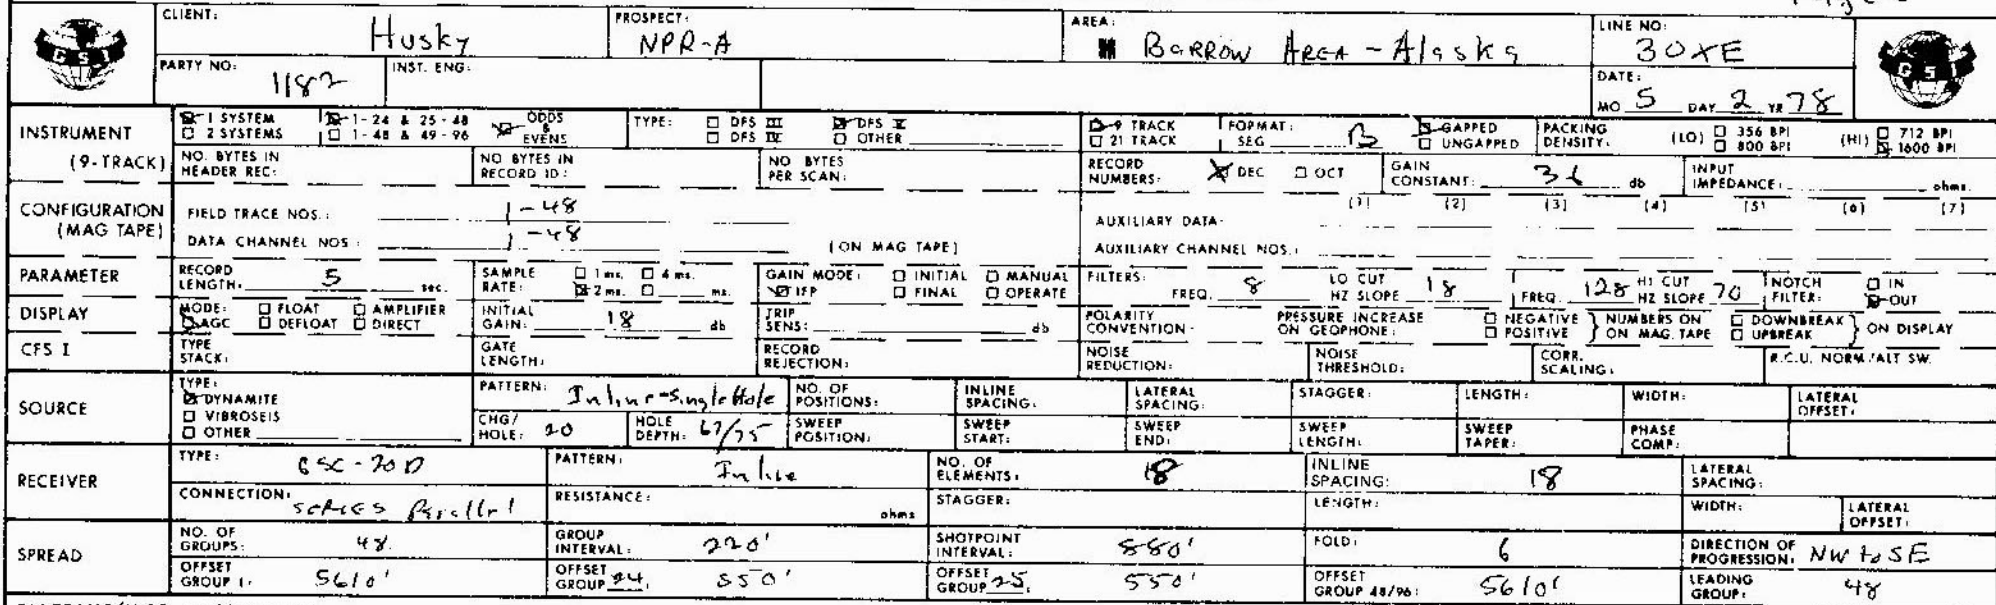 CLIENT: Husky PROSPECT: NPR-A AREA: Barrow Area - Alaska LINE NO: 30XE
GSI GSI
PARTY NO: 1182 INST. ENG: DATE: MO 5 DAY 2 YR 78
INSTRUMENT 1 SYSTEM 1-24 & 25-48 ODDS & EVENS TYPE: DFS III DFS V 9 TRACK FORMAT: SEG B GAPPED PACKING DENSITY: (LO) 356 BPI (HI) 712 BPI
2 SYSTEMS 1-48 & 49-96 DFS IV OTHER 21 TRACK UNGAPPED 800 BPI 1600 BPI
(9-TRACK) NO. BYTES IN HEADER REC: NO BYTES IN RECORD ID: NO BYTES PER SCAN: RECORD NUMBERS: DEC OCT GAIN CONSTANT: 36 db INPUT IMPEDANCE: ohms.
CONFIGURATION (MAG TAPE) FIELD TRACE NOS.: 1-48 AUXILIARY DATA: (1) (2) (3) (4) (5) (6) (7)
DATA CHANNEL NOS: 1-48 (ON MAG TAPE) AUXILIARY CHANNEL NOS.:
PARAMETER RECORD LENGTH: 5 sec. SAMPLE RATE: 1 ms. 4 ms. 2 ms. ms. GAIN MODE: INITIAL MANUAL IFP FINAL OPERATE FILTERS: FREQ. 8 LO CUT HZ SLOPE 18 FREQ. 128 HI CUT HZ SLOPE 70 NOTCH FILTER: IN OUT
DISPLAY MODE: FLOAT AMPLIFIER AGC DEFLOAT DIRECT INITIAL GAIN: 18 db TRIP SENS: db POLARITY CONVENTION- PRESSURE INCREASE ON GEOPHONE: NEGATIVE POSITIVE NUMBERS ON ON MAG. TAPE DOWNBREAK UPBREAK ON DISPLAY
CFS I TYPE STACK: GATE LENGTH: RECORD REJECTION: NOISE REDUCTION: NOISE THRESHOLD: CORR. SCALING: R.C.U. NORM/ALT SW.
SOURCE TYPE: DYNAMITE VIBROSEIS OTHER PATTERN: Inline-Single Hole NO. OF POSITIONS: INLINE SPACING: LATERAL SPACING: STAGGER: LENGTH: WIDTH: LATERAL OFFSET:
CHG/HOLE: 20 HOLE DEPTH: 67/75 SWEEP POSITION: SWEEP START: SWEEP END: SWEEP LENGTH: SWEEP TAPER: PHASE COMP:
RECEIVER TYPE: GSC-20D PATTERN: Inline NO. OF ELEMENTS: 18 INLINE SPACING: 18 LATERAL SPACING:
CONNECTION: SERIES Parallel RESISTANCE: ohms STAGGER: LENGTH: WIDTH: LATERAL OFFSET:
SPREAD NO. OF GROUPS: 48 GROUP INTERVAL: 220' SHOTPOINT INTERVAL: 880' FOLD: 6 DIRECTION OF PROGRESSION: NW to SE
OFFSET GROUP 1: 5610' OFFSET GROUP 24: 550' OFFSET GROUP 25: 550' OFFSET GROUP 48/96: 5610' LEADING GROUP: 48